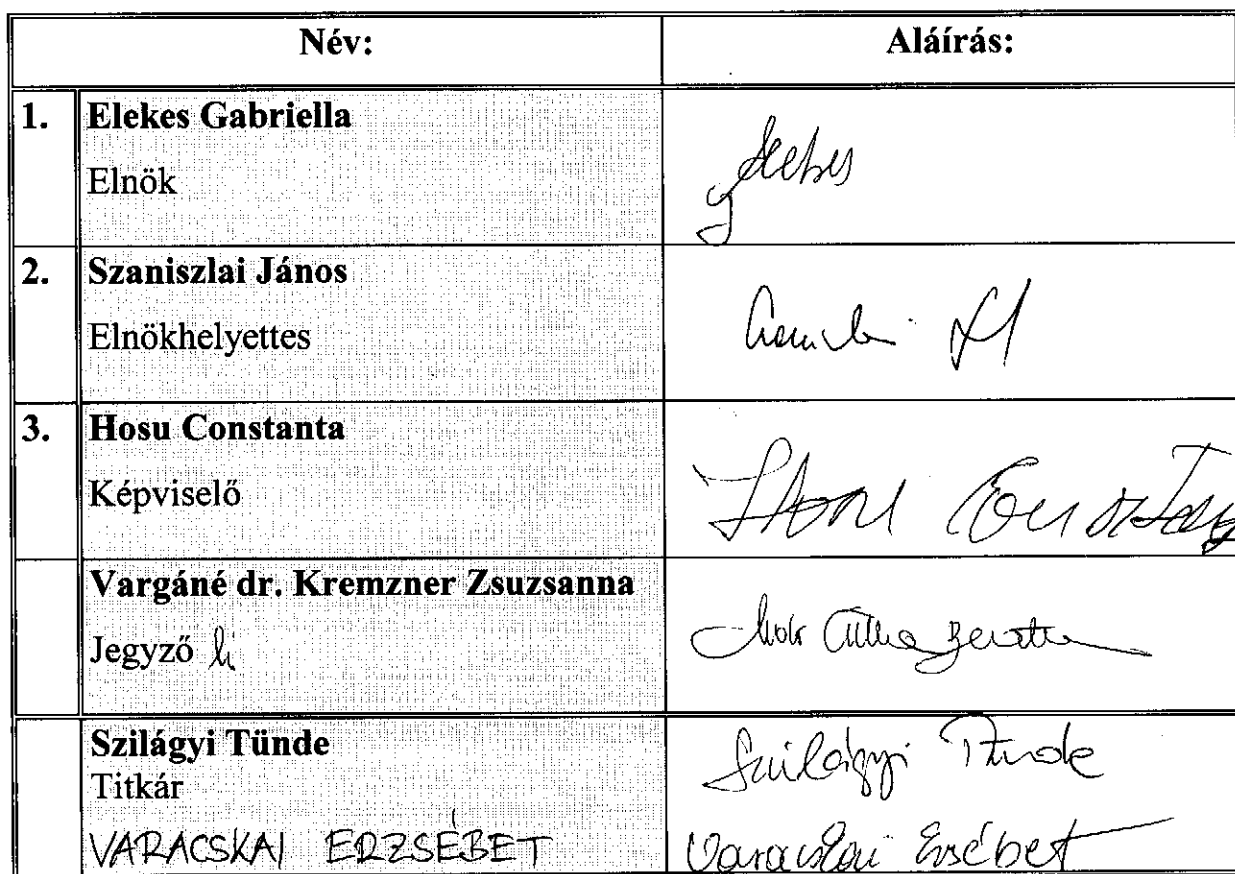 Név: Aláírás:
1. Elekes Gabriella
Elnök
Elekes
2. Szaniszlai János
Elnökhelyettes
3. Hosu Constanta
Képviselő
Vargáné dr. Kremzner Zsuzsanna
Jegyző h
Szilágyi Tünde
Titkár
Szilágyi Tünde
VARACSKAI ERZSÉBET Varacskai Erzsébet